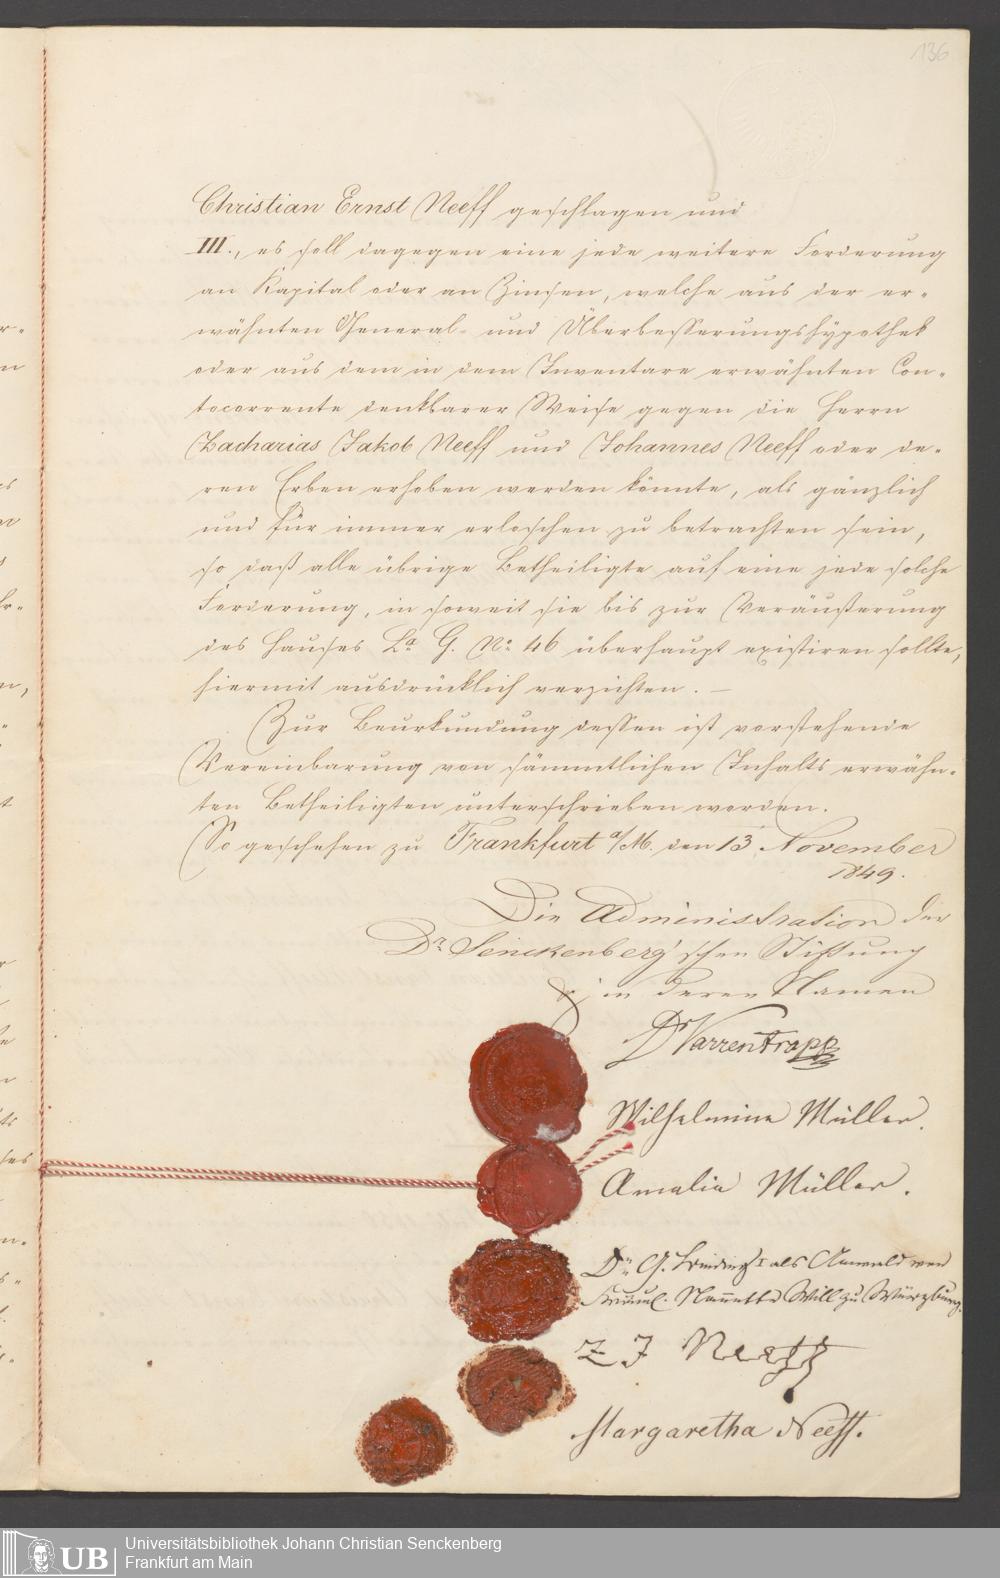 136
Christian Ernst Neeff geschlagen und
III., es soll dagegen eine jede weitere Forderung
an Kapital oder an Zinsen, welche aus der er-
wähnten General- und Überbesserungshypothek
oder aus dem in dem Inventare erwähnten Con-
tocorrente denkbarer Weise gegen die Herrn
Zacharias Jakob Neeff und Johannes Neeff oder de-
ren Erben erhoben werden könnte, als gänzlich
und für immer erloschen zu betrachten sein,
so daß alle übrige Betheiligte auf eine jede solche
Forderung, in soweit sie bis zur Veräußerung
des Hauses La. G. No. 46 überhaupt existiren sollte,
hiermit ausdrücklich verzichten. —
Zur Beurkundung dessen ist vorstehende
Vereinbarung von sämmtlichen Inhalts erwähn-
ten Betheiligten unterschrieben worden.
So geschehen zu Frankfurt a/M. den 13 November
1849.
Die Administration der
Dr. Senckenberg'schen Stiftung
in deren Namen
Dr Varrentrapp
Wilhelmine Müller.
Amalia Müller.
Dr. G. als Anwald von
Nannette Will zu Würzburg.
Z J Neeff
Margaretha Neeff.
UB
Universitätsbibliothek Johann Christian Senckenberg
Frankfurt am Main